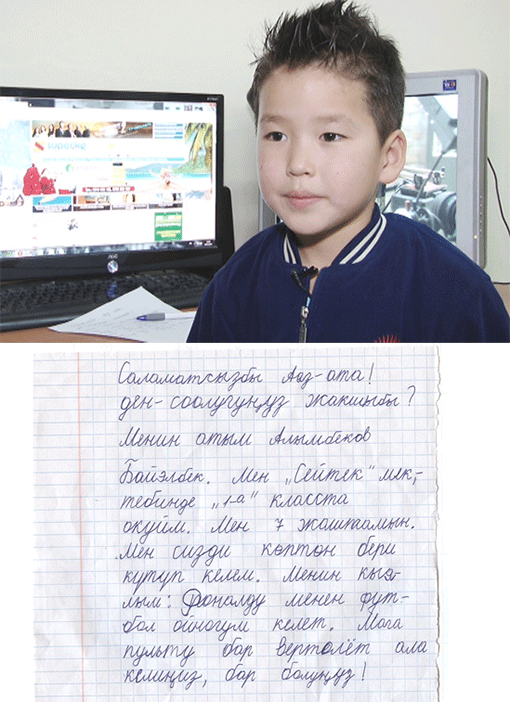 Саламатсызбы Аяз-ата!
ден-соолугуңуз жакшыбы?
Менин атым Алымбеков
Байэлбек. Мен „Сейтек“ мек-
тебинде „1-а“ класста
окуйм. Мен 7 жаштамын.
Мен сизди көптөн бери
күтүп келем. Менин кыя-
лым: Роналду менен фут-
бол ойногум келет. Мага
пульту бар вертолёт ала
келиңиз, бар болуңуз!